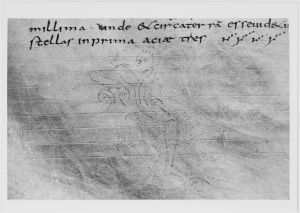 millima · unde & circa terrā esse uide
stellas in prima acie tres